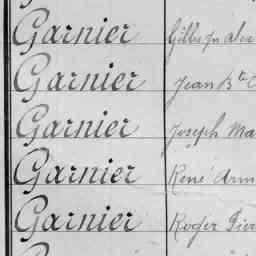 Garnier Gilles Jn
Garnier Jean Bte
Garnier Joseph Ma
Garnier René Arm
Garnier Roger Pier